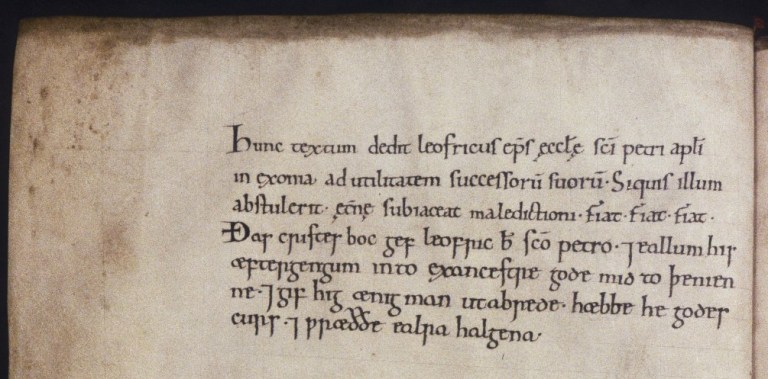 Hunc textum dedit leofricus ep̄s ęccl̄ę sc̄i petri apl̄i
in exonia, ad utilitatem successorū suorū. Siquis illum
abstulerit. ęt̄nę subiaceat maledictioni. f̄iat. f̄iat. f̄iat.
Ðas cristes boc gef leofric b̄ sc̄o petro. ⁊ eallum his
æftergengum into exancestre gode mid to þenien
ne. ⁊ gif hig ænig man utabrede. hæbbe he godes
curs. ⁊ ƿræððe ealra halgena.